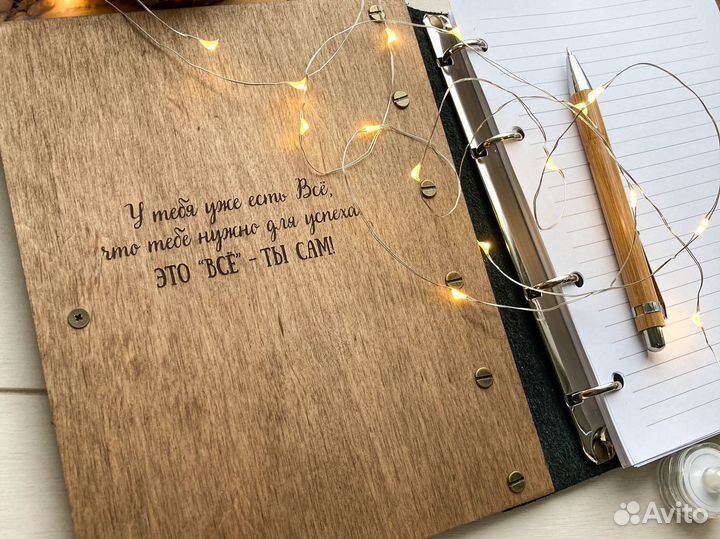 У тебя уже есть Всё,
что тебе нужно для успеха
ЭТО "ВСЁ" - ТЫ САМ!
Avito